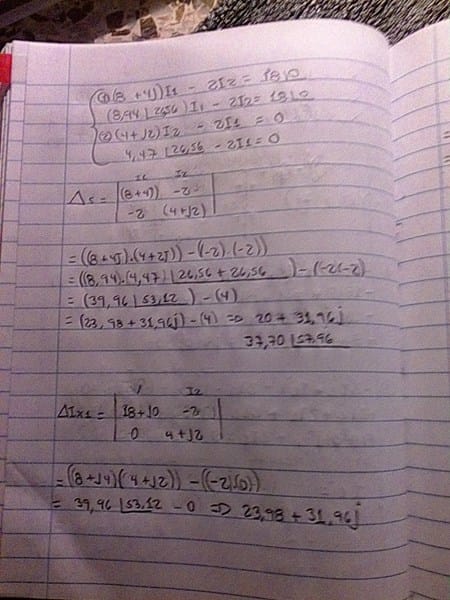 (1)(8 + 4j)I1 - 2I2 = 18∠0
(8,94 ∠26,56)I1 - 2I2 = 18∠0
(2)(4 + j2)I2 - 2I1 = 0
4,47 ∠26,56 - 2I1 = 0
I1 I2
Δs = | (8+4j) -2 |
| -2 (4+j2) |
= ((8+4j).(4+2j)) - (-2).(-2))
= ((8,94).(4,47) ∠26,56 + 26,56) - (-2(-2)
= (39,96 ∠53,12) - (4)
= (23,98 + 31,96j) - (4) ⇒ 20 + 31,96j
37,70 ∠57,96
V I2
ΔIx1 = | 18+j0 -2 |
| 0 4+j2 |
= ((8+j4)(4+j2)) - ((-2)(0))
= 39,96 ∠53,12 - 0 ⇒ 23,98 + 31,96j